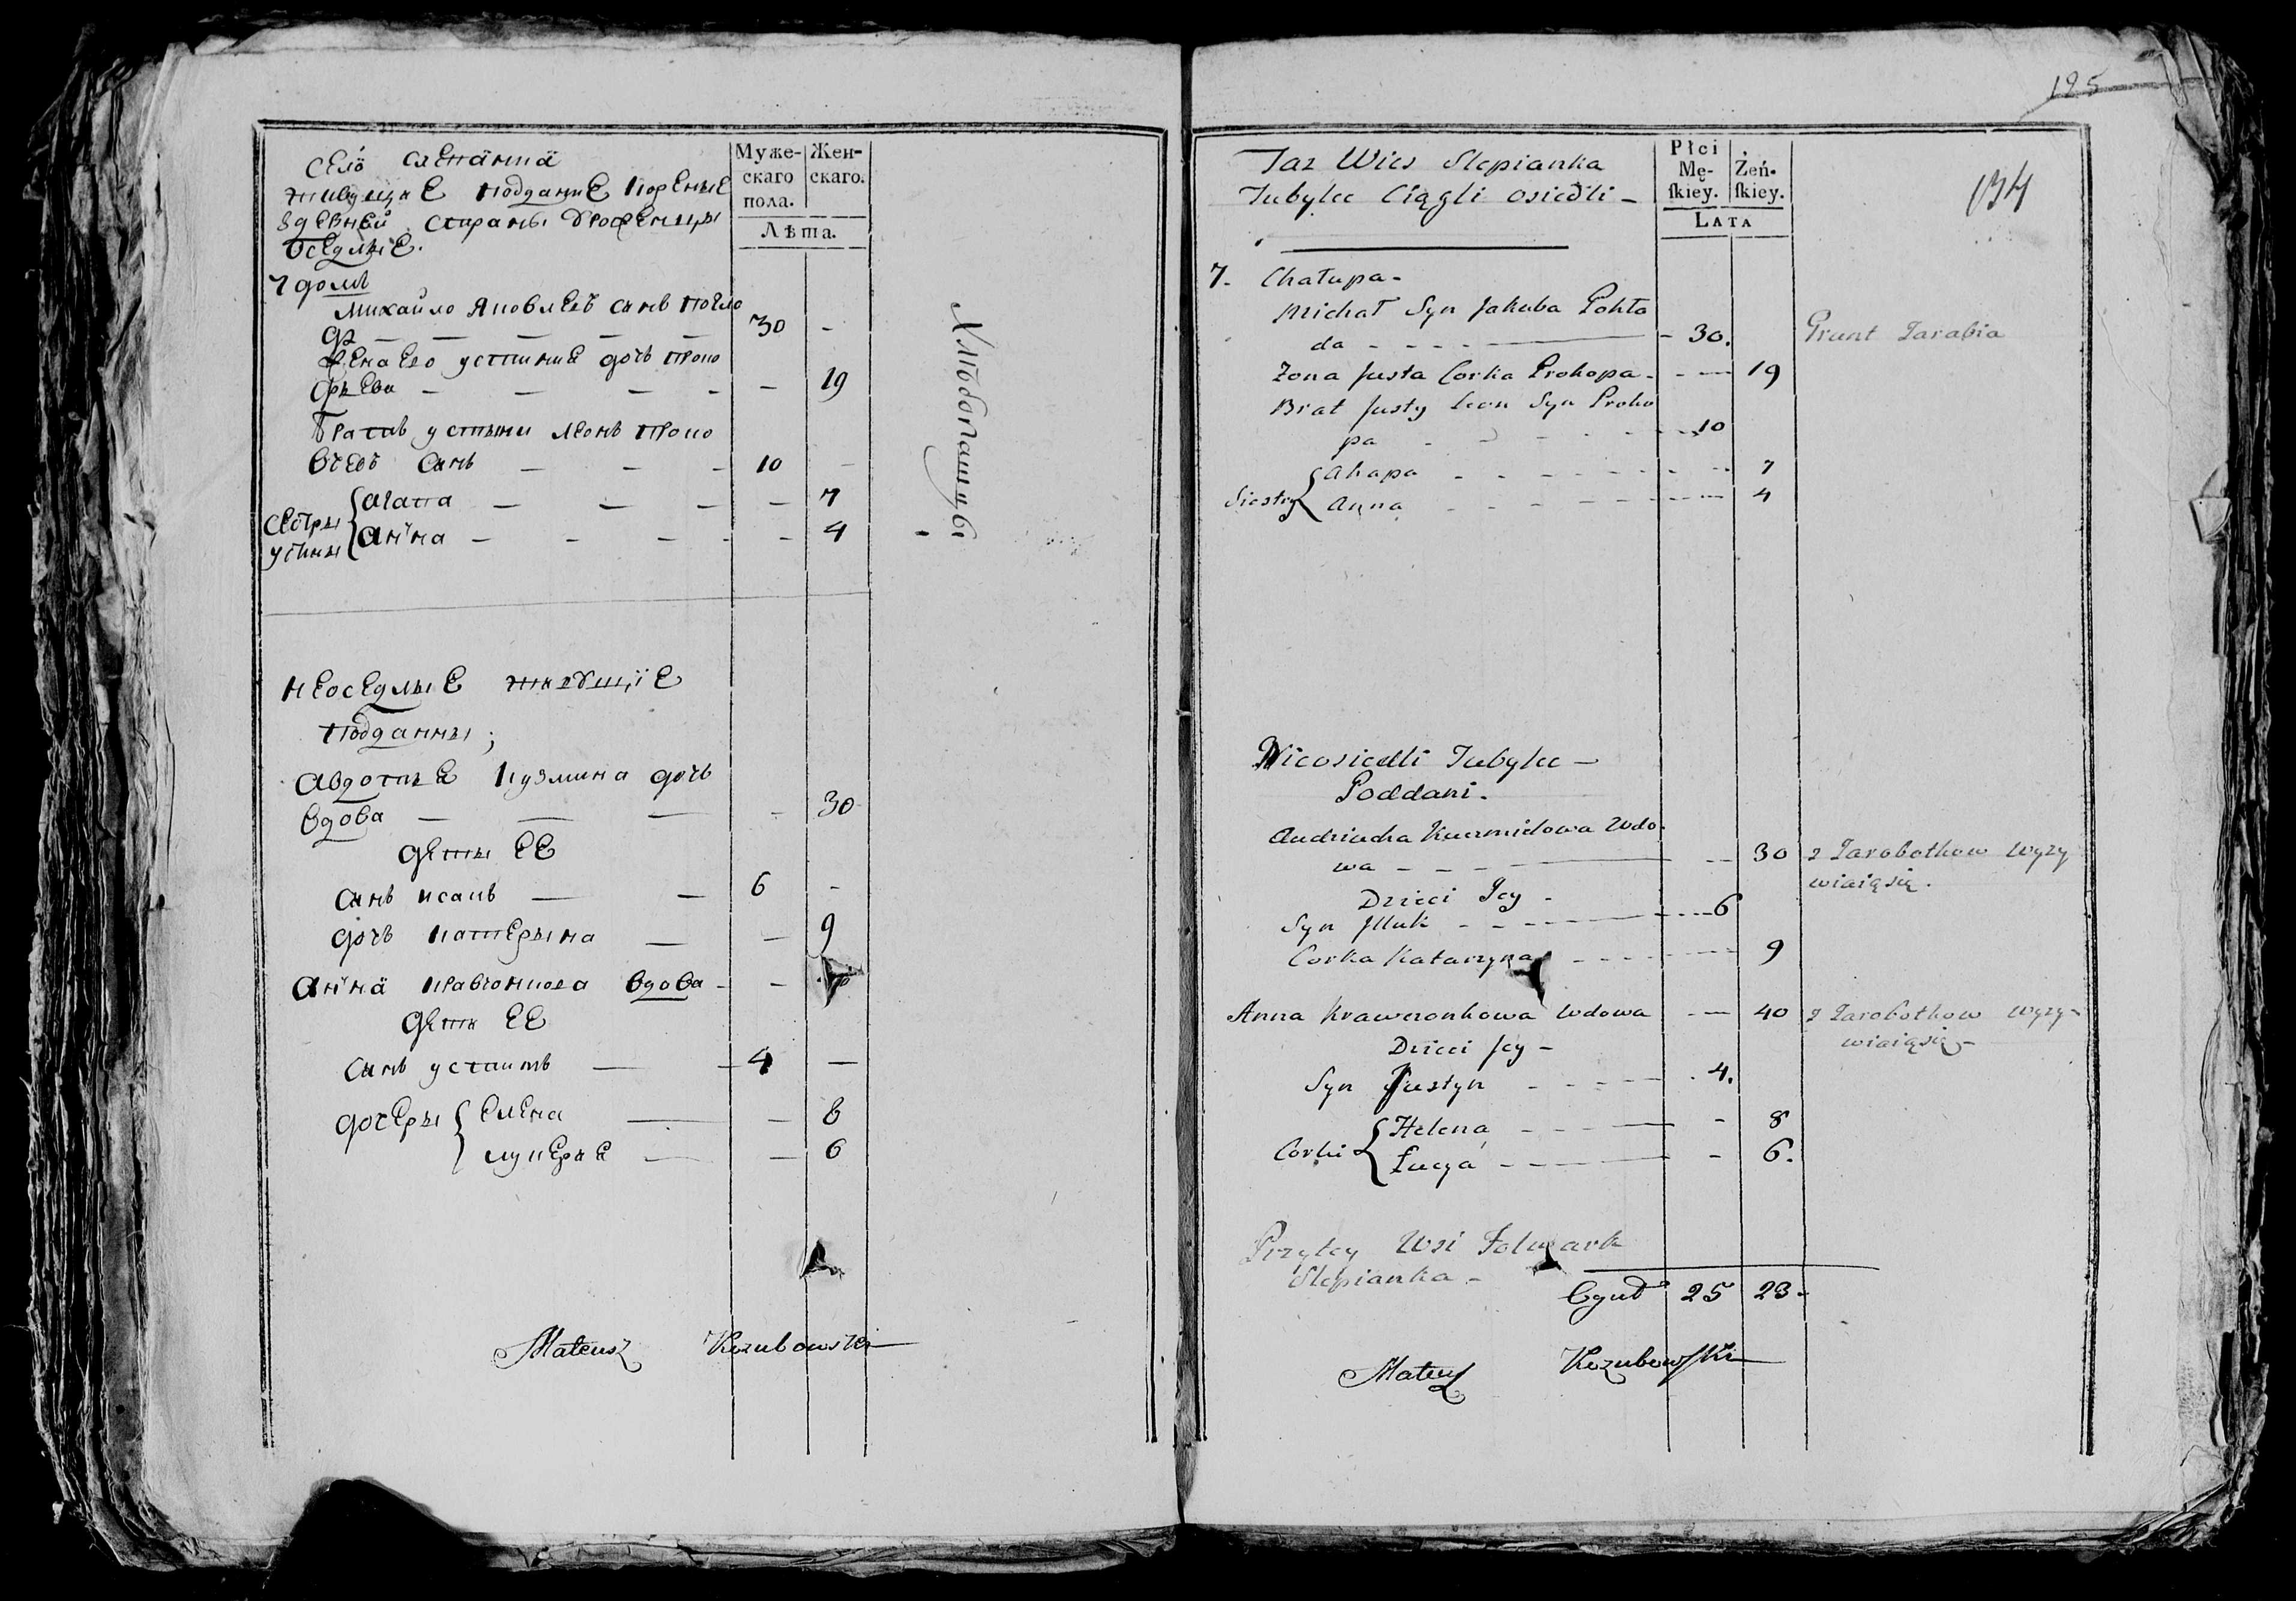 село слепянка
живущие подданые кореные
Оседлые.
Муже-
скаго
пола.
Жен-
скаго.
Лѣта.
7 домъ
Михайло Яковлевъ сынъ Похло
да — — — — — 30 -
Жена Его устиния дочь Проко
фьева — — — - — 19
Братъ устыни Леонъ Проко
сынъ — — - 10 -
Сестры
устины
агапа — — — — 7
анна — - — - - 4
Хлебопашцы
неоседлые живущіе
подданны;
авдотья кузмина дочь
вдова — — — - 30
дети ЕЕ
сынъ исакъ — — 6 -
дочь катерына — — 9
анна кравчонкова вдова - -
дети ЕЕ
сынъ устинъ — - 4 —
дочеры
елена — — 8
лукерья — — 6
Mateusz Kozubowski
125
134
Taz Wies Slepianka
Tubylce Ciągli osiedli -
Płci
Mę-
ſkiey.
Żeń-
ſkiey.
LATA
7. Chałupa -
Michał Syn Jakuba Pohło
da - - - - 30. Grunt Zarabia
Zona Justa Corka Prokopa - - — 19
Brat Justy Leon Syn Proko
pa - - - - 10
Siestry
Ahapa - - - - - 7
Anna - - - - - 4
Nieosiedli Tubylce —
Poddani.
wa - - - — - 30 z Zarobotkow wyzy
wiaią się.
Dzieci Jey -
Syn Illuk - - - - 6
Corka Katarzyna - - - - 9
Anna Krawczonkowa Wdowa - — 40 z Zarobotkow wyzy-
wiaią się -
Dzieci Jey -
Syn Justyn - - - - 4.
Corki
Helena - - - — - 8
Łucya - - - — - 6.
Przytey Wsi Folwark
Slepianka -
Oguł 25 23 -
Mateusz Kozubowſki